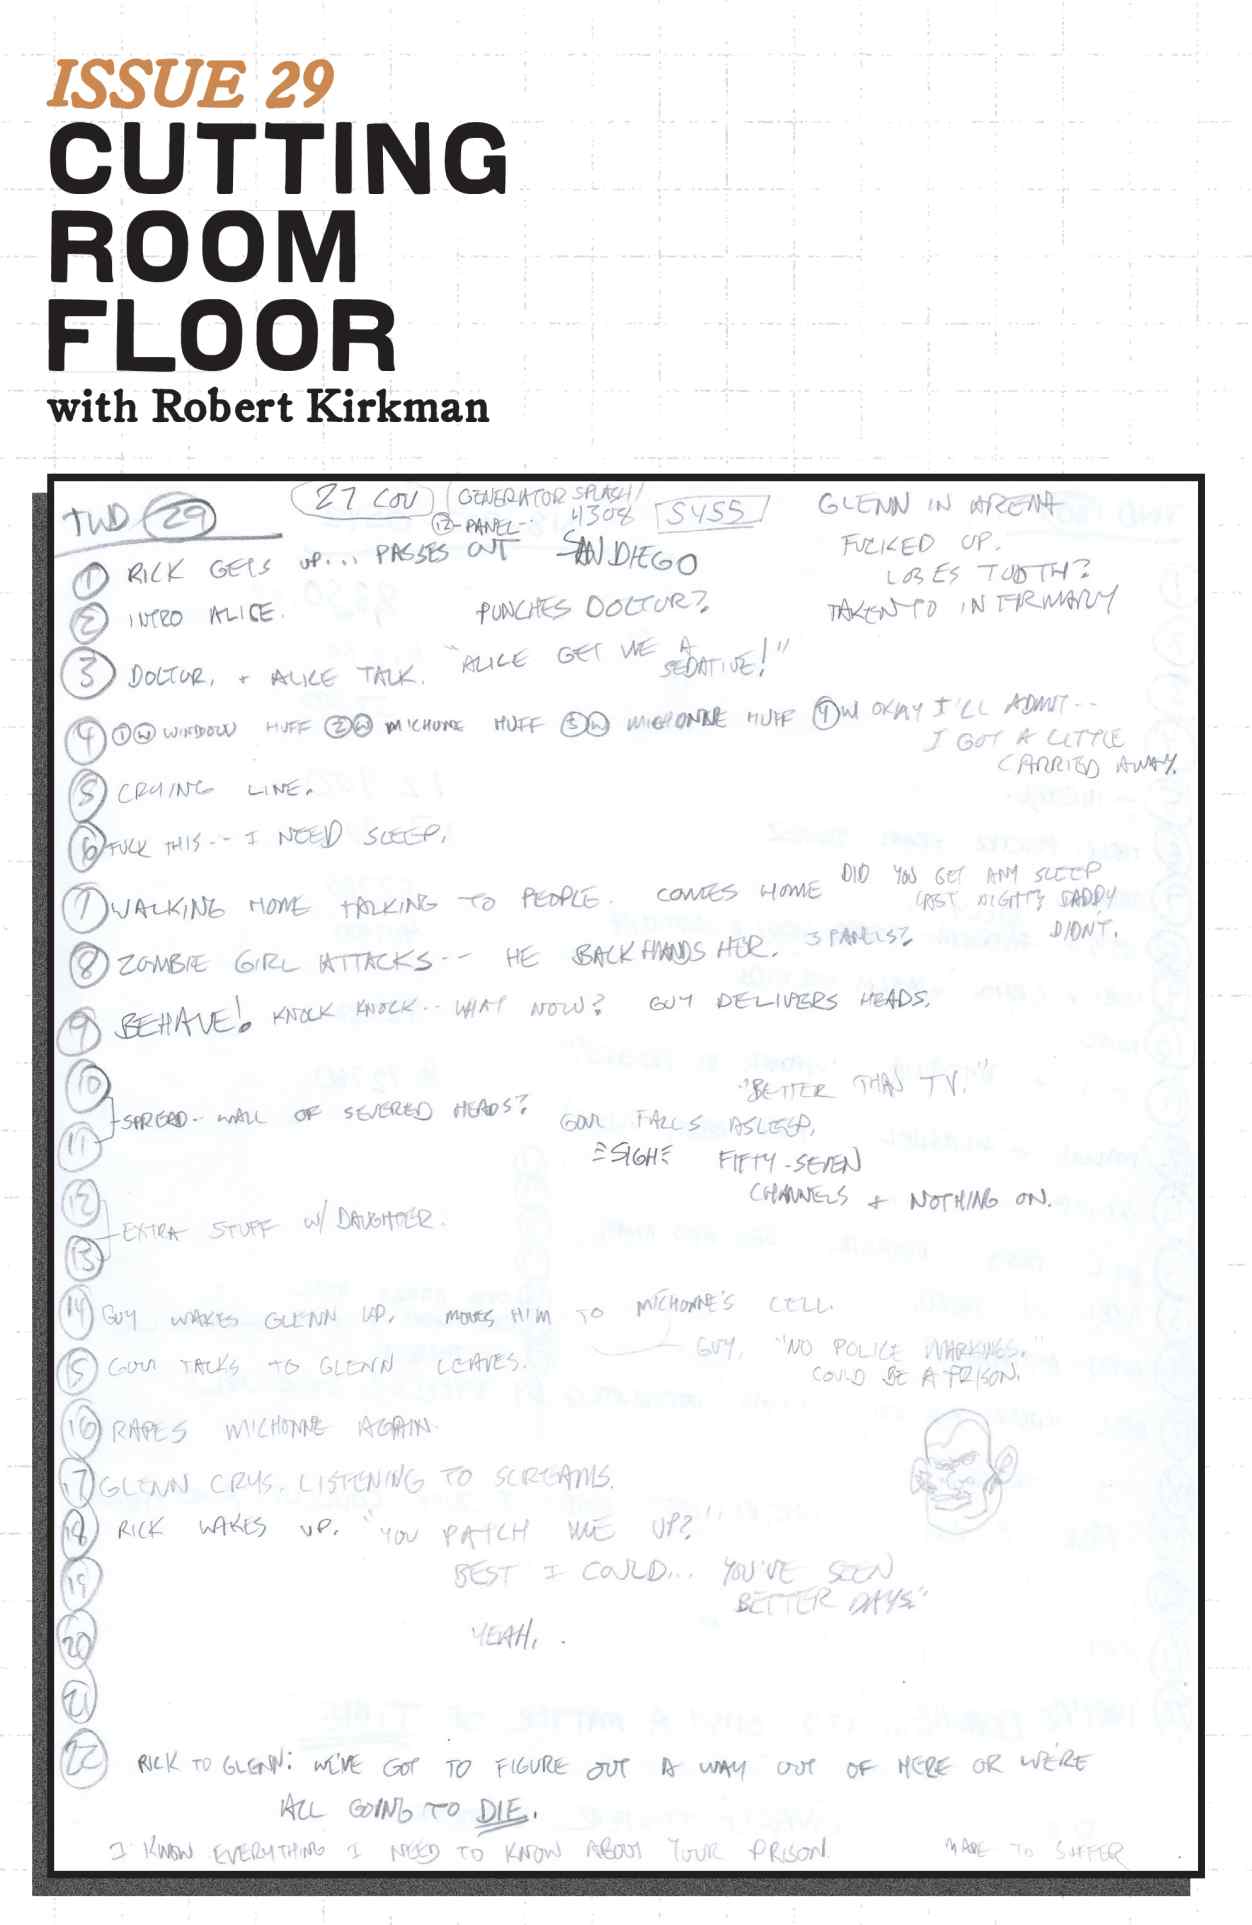 ISSUE 29
CUTTING
ROOM
FLOOR
with Robert Kirkman
TWD 29
27 COV
GENERATOR SPLASH/
12-PANEL--
4308
5455
SAN DIEGO
GLENN IN ARENA
FUCKED UP.
LOSES TOOTH?
TAKEN TO INFIRMARY
1 RICK GETS UP... PASSES OUT
2 INTRO ALICE.
PUNCHES DOCTOR?
3 DOCTOR, + ALICE TALK. "ALICE GET ME A
SEDATIVE!"
4 1 W WINDOW HUFF 2 W MICHONNE HUFF 3 W MICHONNE HUFF 4 W OKAY I'LL ADMIT--
I GOT A LITTLE
CARRIED AWAY.
5 CRYING LINE.
6 FUCK THIS-- I NEED SLEEP.
7 WALKING HOME TALKING TO PEOPLE. COMES HOME
DID YOU GET ANY SLEEP
LAST NIGHT? DADDY
DIDN'T.
8 ZOMBIE GIRL ATTACKS-- HE BACKHANDS HER. 3 PANELS?
9 BEHAVE! KNOCK KNOCK-- WHAT NOW? GUY DELIVERS HEADS.
10
11
SPREAD-- WALL OF SEVERED HEADS?
"BETTER THAN TV."
GOV. FALLS ASLEEP.
SIGH
FIFTY-SEVEN
CHANNELS + NOTHING ON.
12
13
EXTRA STUFF W/ DAUGHTER.
14 GUY WAKES GLENN UP. MOVES HIM TO MICHONNE'S CELL.
GUY, "NO POLICE MARKINGS."
COULD BE A PRISON.
15 GOV TALKS TO GLENN LEAVES.
16 RAPES MICHONNE AGAIN.
17 GLENN CRYS. LISTENING TO SCREAMS.
18 RICK WAKES UP. "YOU PATCH ME UP?"
19
BEST I COULD... YOU'VE SEEN
BETTER DAYS."
20
YEAH.
21
22 RICK TO GLENN: WE'VE GOT TO FIGURE OUT A WAY OUT OF HERE OR WE'RE
ALL GOING TO DIE.
I KNOW EVERYTHING I NEED TO KNOW ABOUT YOUR PRISON.
MADE TO SUFFER